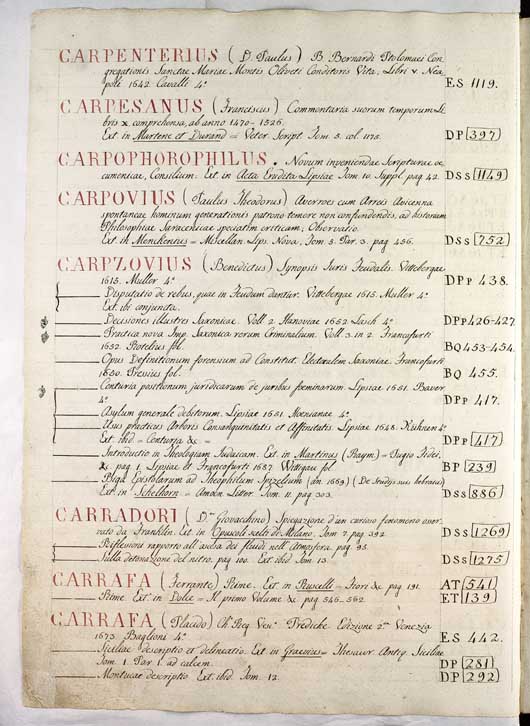 CARPENTERIUS (D. Paulus) B. Bernardi Ptolomaei Con
gregationis Sanctae Mariae Montis Oliveti Conditoris Vita, Libri V. Nea
poli 1642 Cavalli 4° ES 1119.
CARPESANUS (Franciscus) Commentaria suorum temporum Li
bris X. comprehensa, ab anno 1470-1526.
Ext in Martene et Durand = Veter Script Tom 5. col 1175. DP 397
CARPOPHOROPHILUS. Novum inveniendae Scripturae oe
cumenicae, Consilium. Ext. in Acta Erudita Lipsiae Tom 10. Suppl. pag 42. DSS 1149
CARPOVIUS (Paulus Theodorus) Averroes cum Arreis Avicenna
spontaneae hominum generationis patrono temere non confundendus, ad historiam
Philosophiae Saracenicae speciatim criticam, Observatio.
Ext in Menckenius = Miscellan Lips. Nova. Tom 5. Par. 3. pag 456. DSS 752
CARPZOVIUS (Benedictus) Synopsis Iuris Feudalis. Vittebergae
1615. Muller 4° DPp 438.
Disputatio de rebus, quae in Feudum dantur. Vittebergae 1615. Muller 4°
Ext. ibi conjuncta.
Decisiones illustres Saxonicae. Voll. 2. Hanoviae 1652 Lasch 4° DPp 426-427.
Practica nova Imp. Saxonica rerum Criminalium. Voll. 3. in 2. Francofurti
1652. fol. BQ 453-454.
Opus Definitionum forensium ad Constitut. Electoralem Saxoniae. Francofurti
1650. fol. BQ 455.
Centuria positionum juridicarum de juribus foeminarum Lipsiae 1651. Bavor.
4° DPp 417.
Asylum generale debitorum. Lipsiae 1651 4°
Usus practicus Arboris Consanguinitatis et Affinitatis. Lipsiae 1648. 4°
Ext. ibid = Centuria &c = DPp 417
Introductio in Theologiam Judaicam. Ext. in Martinus (Raym) = Pugio Fidei.
&c pag 1. Lipsiae et Francofurti 1687. Wittgau fol BP 239
Biga Epistolarum ad Theophilum Spizelium (an. 1669) (De Studijs suis hebraicis)
Ext. in Schelhorn = Amoen Litter Tom. 11. pag 303. DSS 886
CARRADORI (D.r Giovacchino) Spiegazione d'un curioso fenomeno osser
vato da Franklin. Ext. in Opuscoli scelti di Milano. Tom 7. pag 392. DSS 1269
Riflessioni rapporto all' ascesa dei fluidi nell' Atmosfera. pag. 95.
Sulla detonazione del nitro. pag 100. Ext. ibid Tom 13. DSS 1275
CARRAFA (Ferrante) Rime. Ext. in Ruscelli = Fiori &c. pag 191. AT 541
Rime. Ext. in Dolce = Il primo Volume &c. pag 546. 562. ET 139
CARRAFA (Placido) Ch. Reg. Prediche Edizione 2.da Venezia
1673. Baglioni 4° ES 442.
Siciliae descriptio et delineatio. Ext in Graevius = Thesaur. Antiq. Siciliae
Tom 1. Par 1. ad calcem. DP 281
Montucae descriptio. Ext. ibid Tom 12. DP 292